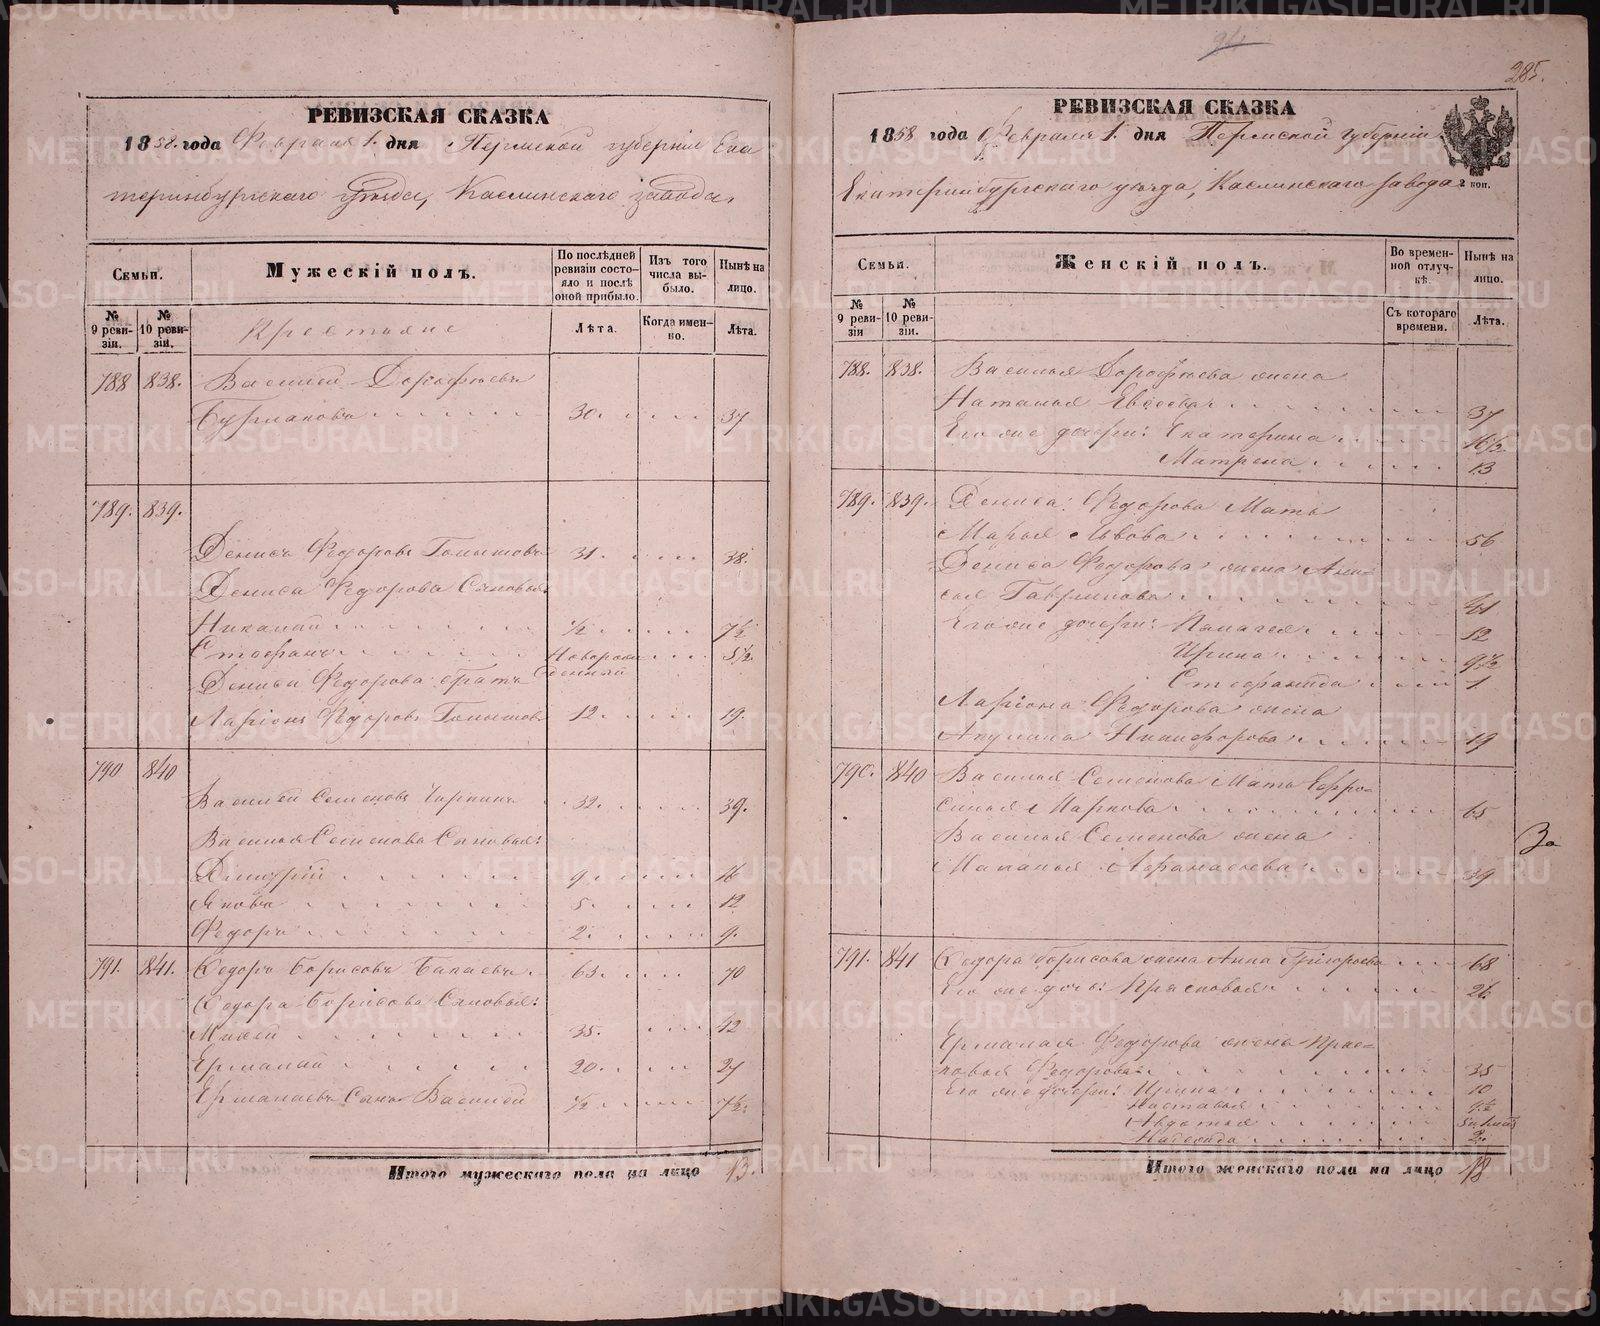 РЕВИЗСКАЯ СКАЗКА
1858. года Февраля 1. дня Пермской губернiи Ека
теринбургскаго уѣзда, Каслинскаго завода.
Семьи.
Мужескiй полъ.
По послѣдней ревизiи состояло и послѣ оной прибыло.
Изъ того числа выбыло.
Нынѣ на лицо.
№ 9 ревизiи.
№ 10 ревизiи.
Крестьяне
Лѣта.
Когда именно.
Лѣта.
788 838. Василiй Дорофѣевъ
30. 37
789. 839.
Денисъ Федоровъ 31. 38.
Дениса Федорова Сыновья:
Николай 1/2 7 1/2
Стефанъ Новорож 5 1/2
Дениса Федорова братъ денный
Ларiонъ Федоровъ 12. 19.
790 840
Василiй Семеновъ 32. 39.
Василья Семенова Сыновья:
Димитрiй 9. 16
Яковъ 5. 12
Федоръ 2. 9.
791. 841. Федоръ Борисовъ 63. 70
Федора Борисова Сыновья:
35. 42
Ермолай 20. 27
Ермолаевъ Сынъ Василiй 1/2 7 1/2
Итого мужескаго пола на лицо 13.
285.
РЕВИЗСКАЯ СКАЗКА
1858 года Февраля 1. дня Пермской губернiи
Екатеринбургскаго уѣзда, Каслинскаго завода
2 коп.
Семьи.
Женскiй полъ.
Во временной отлучкѣ.
Нынѣ на лицо.
№ 9 ревизiи
№ 10 ревизiи.
Съ котораго времени.
Лѣта.
788. 838. Василья Дорофѣева жена
Наталья Евсеева 37
Его же дочери: Екатерина 16 1/2
Матрена 13
789. 839. Дениса Федорова Мать
Марья Львова 56
Дениса Федорова жена Ани=
сья Гаврилова 41
Его же дочери: Палагея 12
Ирина 9 1/2
Стефанида 1
Ларiона Федорова жена
Акулина Никифорова 19
790. 840 Василья Семенова Мать Ефро=
синья Маркова 65
Василья Семенова жена
Маланья Афанасьева 39
За
791. 841 Федора Борисова жена Анна Григорьева 68
Его же дочь: Прасковья 26
Ермолая Федорова жена Прас=
ковья Федорова 35
Его же дочери: Ирина 10
Настасья 9 1/2
Авдотья
Надежда 2.
Итого женскаго пола на лицо 18
METRIKI.GASO-URAL.RU